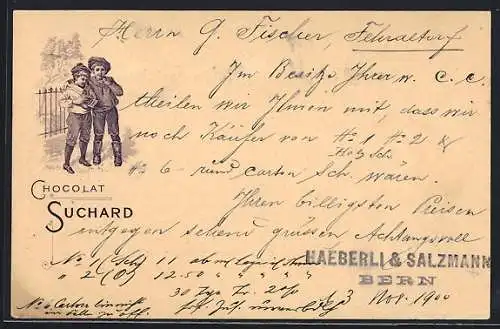 Herrn G. Fischer, Fehraltorf
Im Besitze Ihrer w. C. C.
theilen wir Ihnen mit, dass wir
noch Käufer von No 1 No 2 &
Holz Sch.
No 6 - rund carton Sch. wären.
Ihren billigsten Preisen
entgegen sehend grüssen Achtungsvoll
CHOCOLAT
SUCHARD
HAEBERLI & SALZMANN
BERN
No 1 (Sch) 11
" 2 (O) 12.50 " " " "
3 Nov. 1900
30 Tge
No 6 Carton